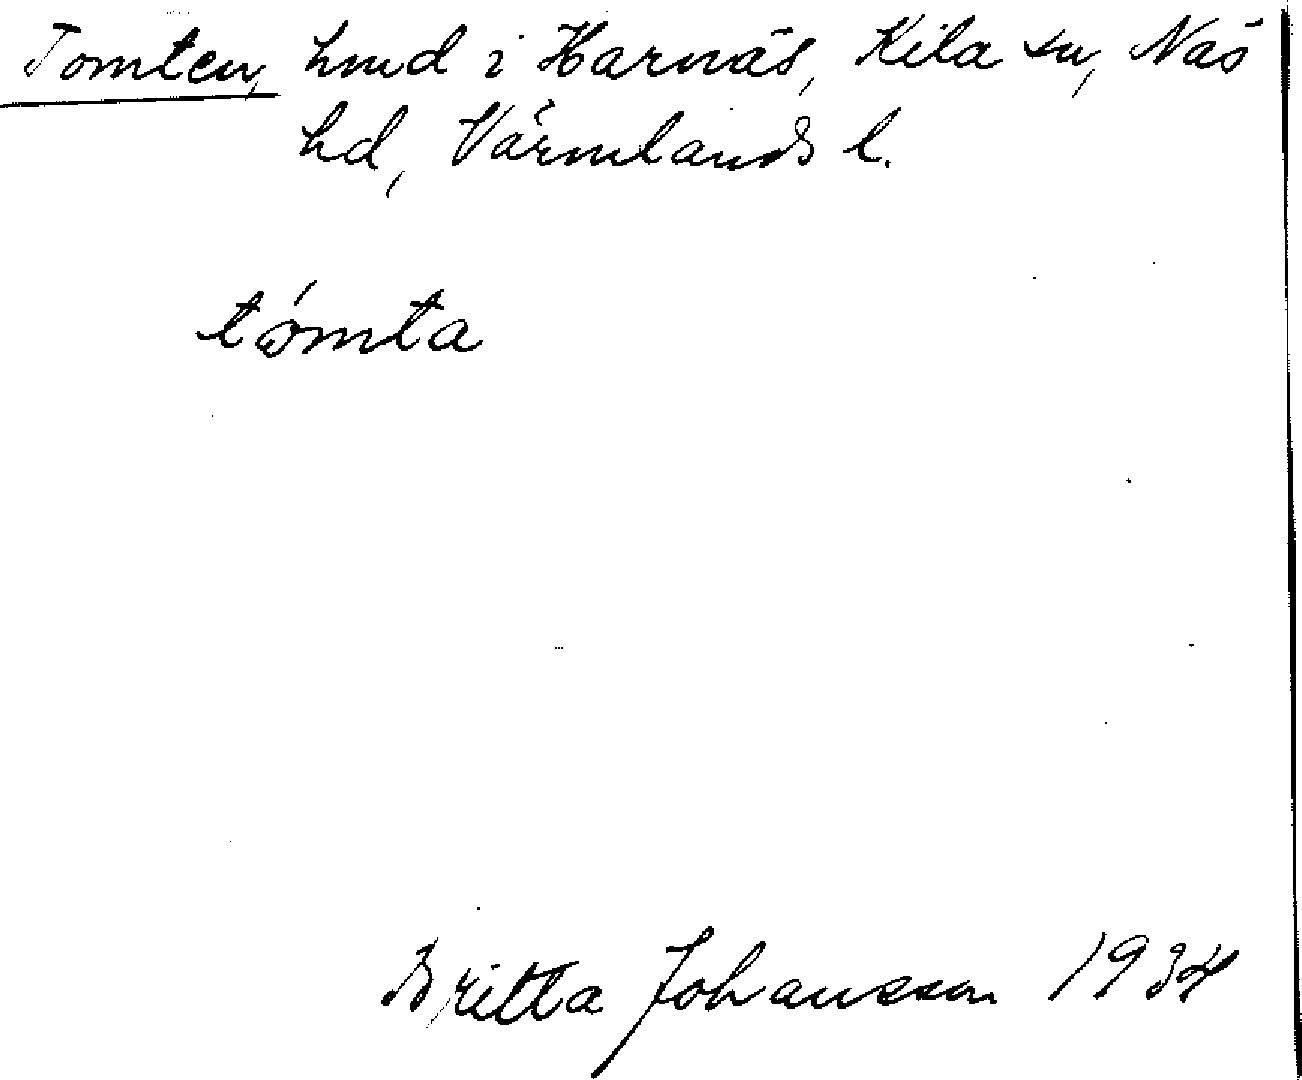 Tomten, hmd i Harnäs, Kila sn, Näs
hd, Värmlands l.
tómta
Britta Johansson 1934